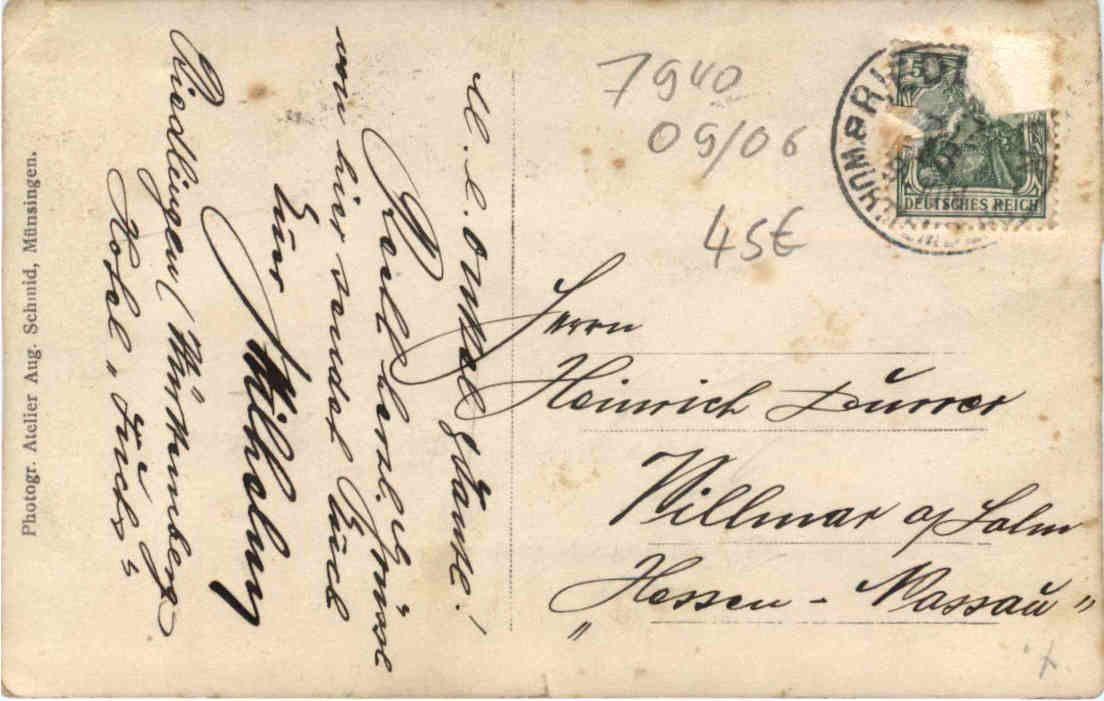 Photogr. Atelier Aug. Schmid, Münsingen.
Onkel & Tante!
Recht herzl. Grüsse
von hier sendet Euch
Euer
Wilhelm
Riedlingen (Württemberg
Hotel „
7940
09/06
45€
5
DEUTSCHES REICH
Herrn
Heinrich Durrer
Villmar a/Lahn
„Hessen - Nassau"